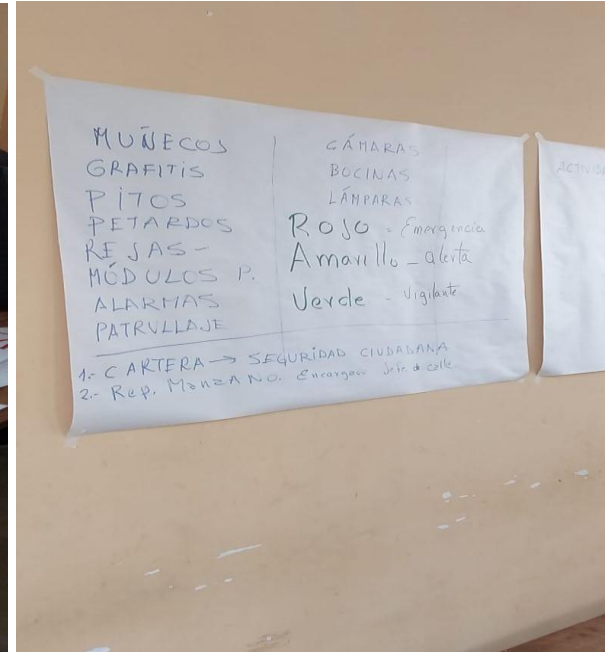 MUÑECOS
GRAFITIS
PITOS
PETARDOS
REJAS -
MÓDULOS P.
ALARMAS
PATRULLAJE
CÁMARAS
BOCINAS
LÁMPARAS
ROJO - Emergencia
Amarillo - alerta
Verde - Vigilante
1.- CARTERA → SEGURIDAD CIUDADANA
2.- Rep. MANZANO. Jefe de calle